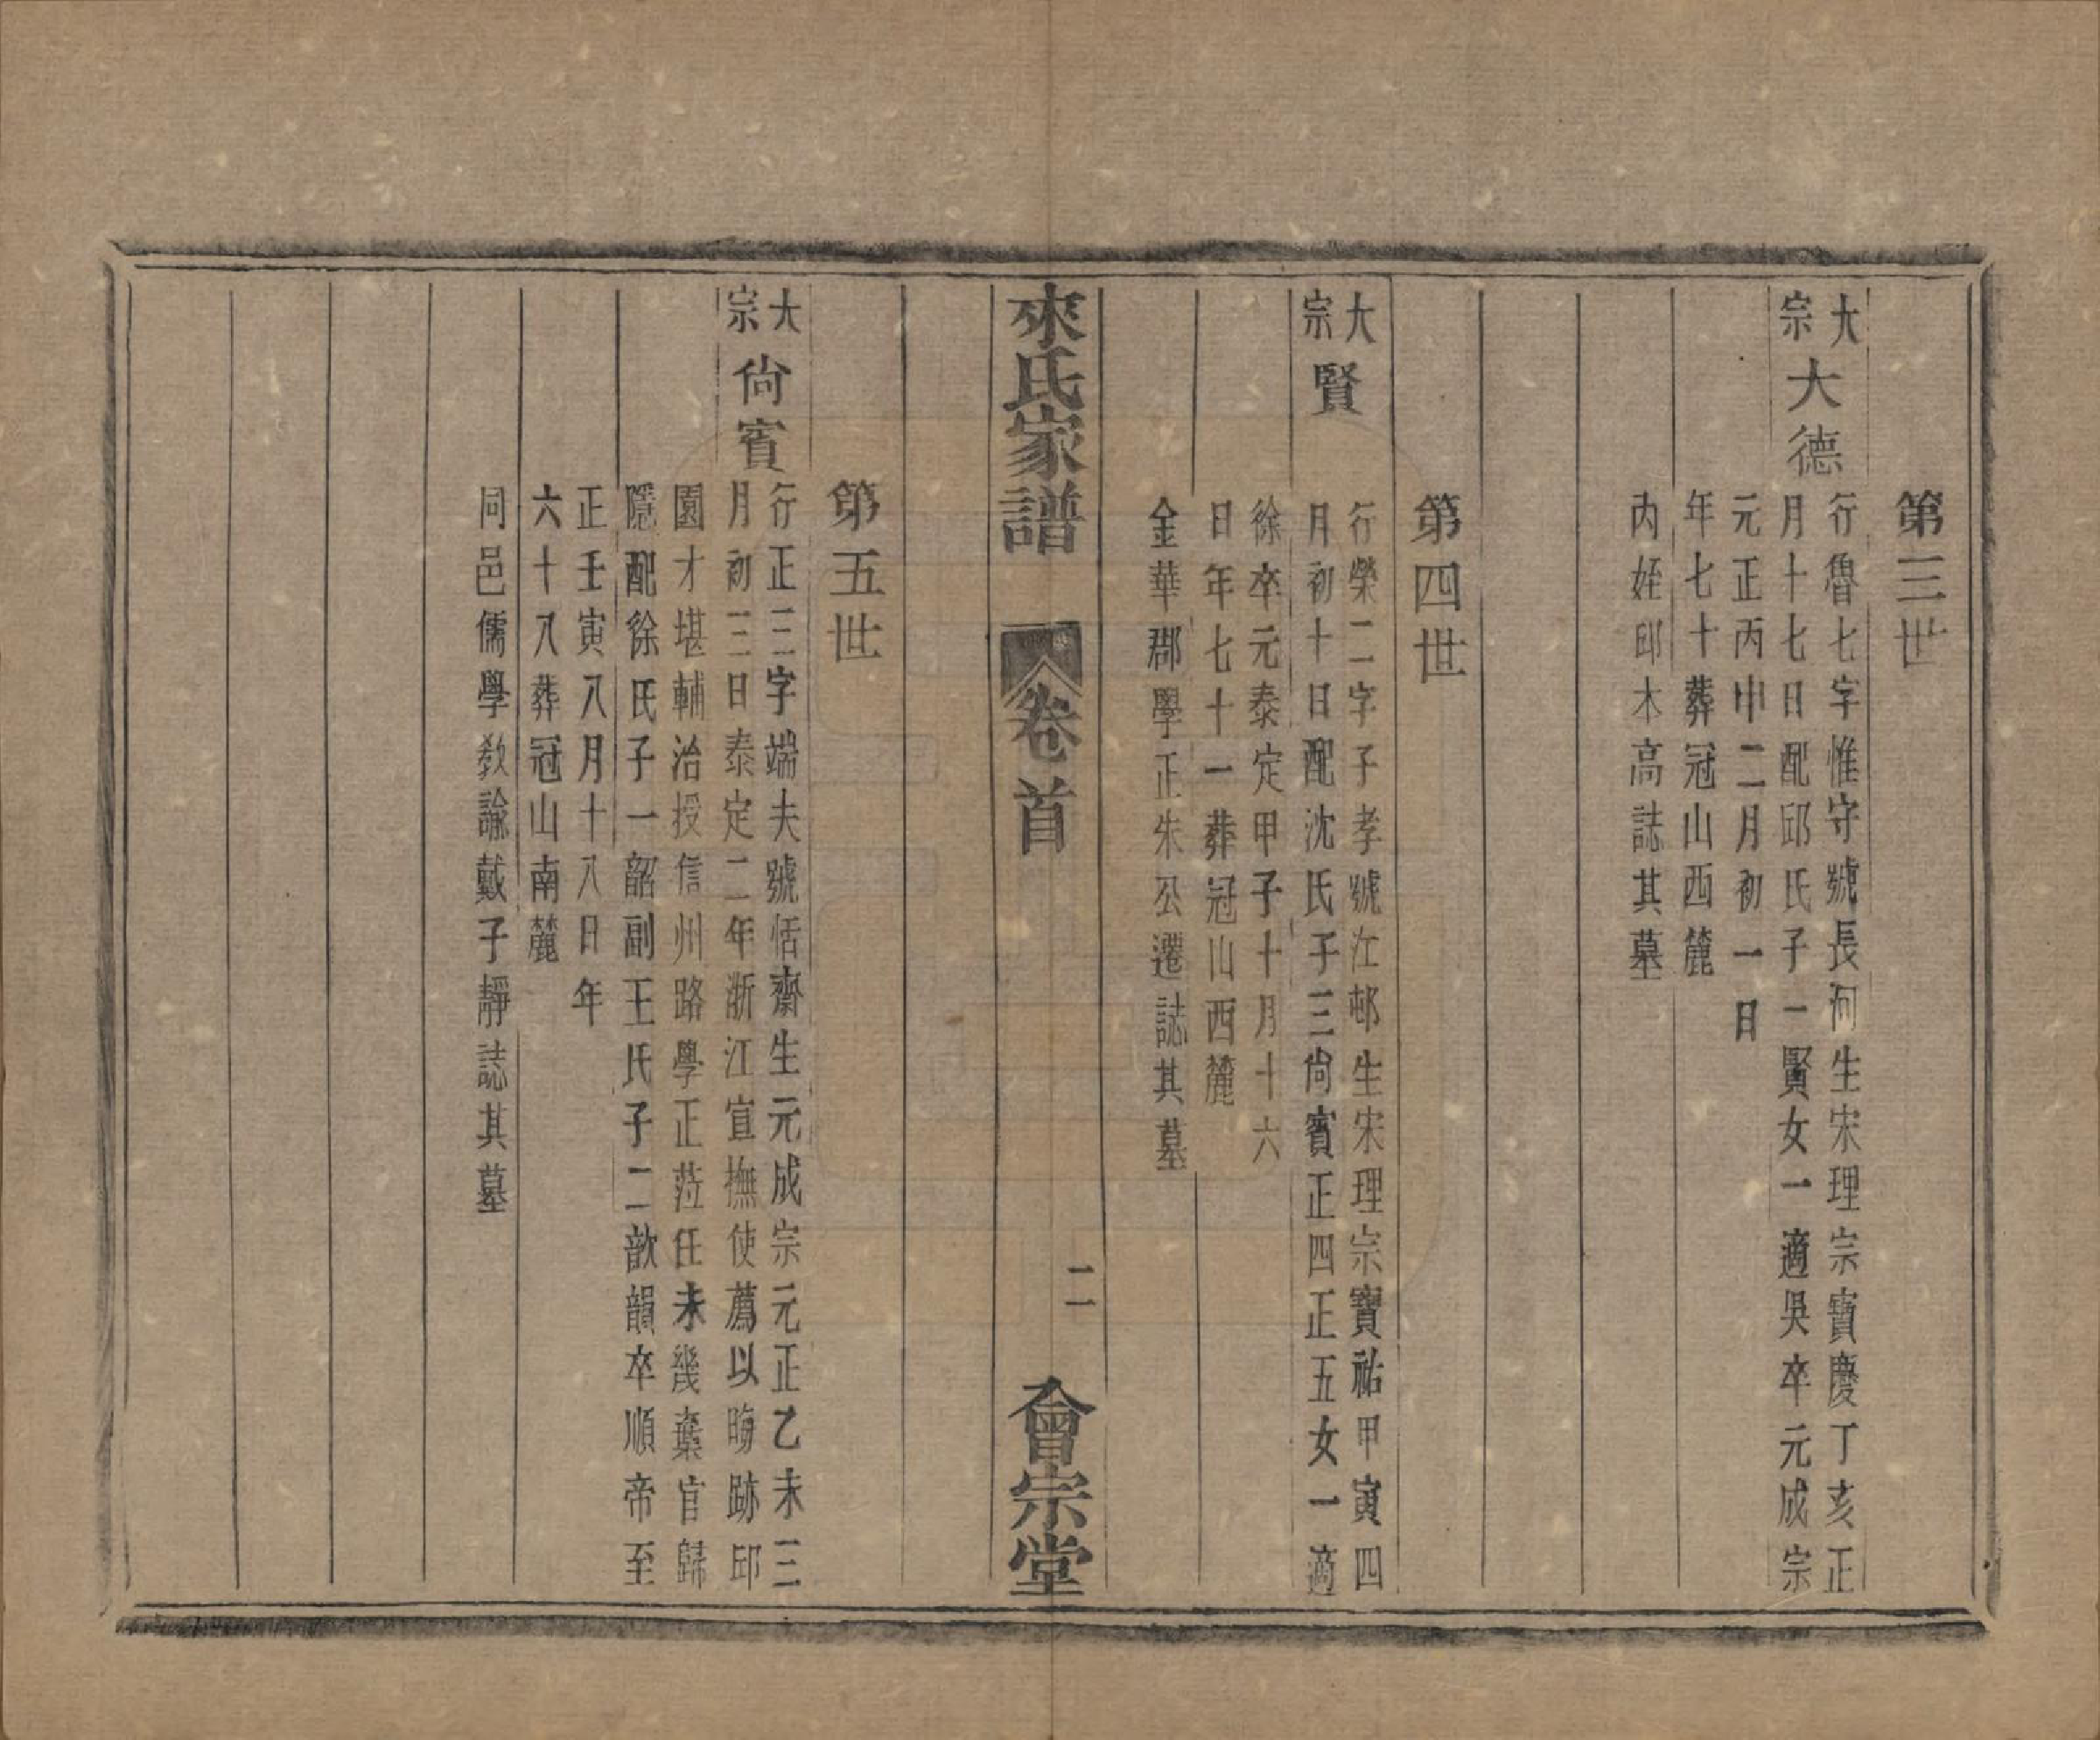 第三世
大宗 大德
行魯七字惟守號長河生宋理宗寶慶丁亥正
月十七日配邱氏子一賢女一適吳卒元成宗
元正丙申二月初一日
年七十葬冠山西麓
內姪邱木高誌其墓
第四世
大宗 賢
行榮二字子孝號江邨生宋理宗寶祐甲寅四
月初十日配沈氏子三尙賓正四正五女一適
徐卒元泰定甲子十月十六
日年七十一葬冠山西麓
金華郡學正朱公遷誌其墓
來氏家譜 卷首 二 會宗堂
第五世
大宗 尙賓
行正三字端夫號恬齋生元成宗元正乙未三
月初三日泰定二年浙江宣撫使薦以晦跡邱
園才堪輔治授信州路學正蒞任未幾棄官歸
隱配徐氏子一韶副王氏子二歆韻卒順帝至
正壬寅八月十八日年
六十八葬冠山南麓
同邑儒學敎諭戴子靜誌其墓